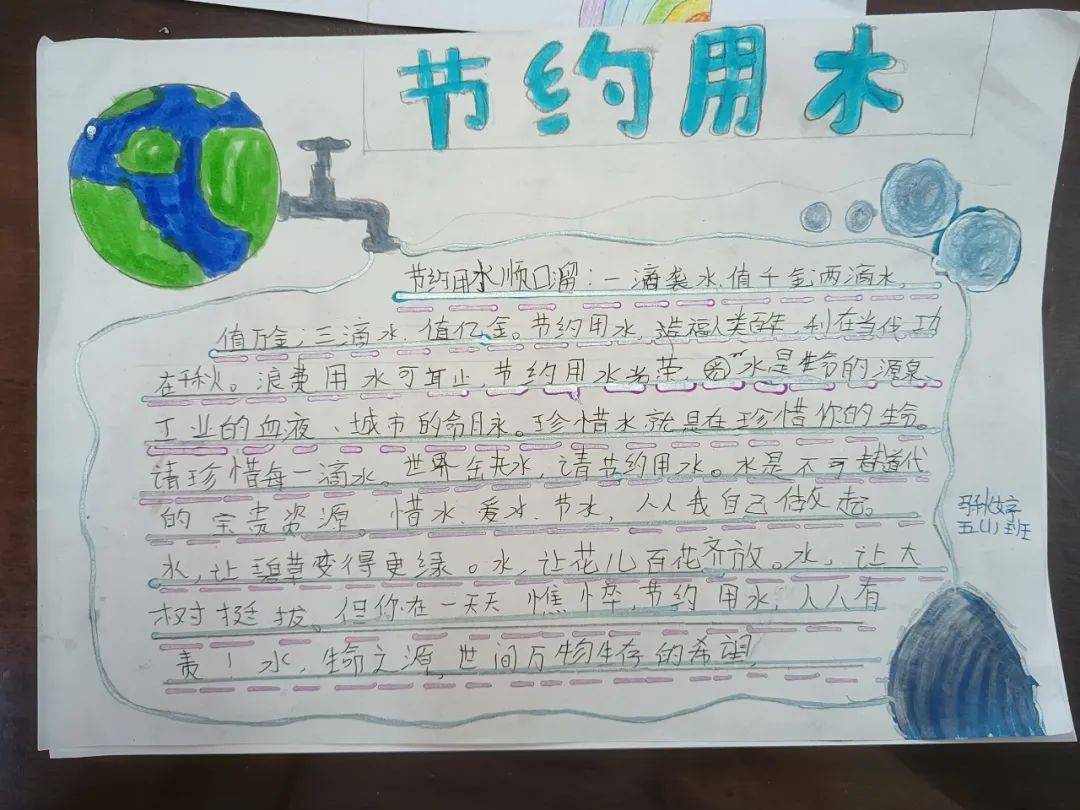 节约用水
节约用水顺口溜:一滴袭水,值千金;两滴水,
值万金;三滴水,值亿金。节约用水,造福人类百年,利在当代,功
在千秋。浪费用水可耻,节约用水光荣,"水是生命的源泉、
工业的血液、城市的命脉。珍惜水就是在珍惜你的生命。
请珍惜每一滴水。世界缺水,请节约用水。水是不可替代
的宝贵资源。惜水、爱水、节水,从我自己做起。
水,让碧草变得更绿。水,让花儿百花齐放。水,让大
树挺拔。但你在一天天憔悴,节约用水,人人有
责!水,生命之源,世间万物生存的希望,
五(1)班